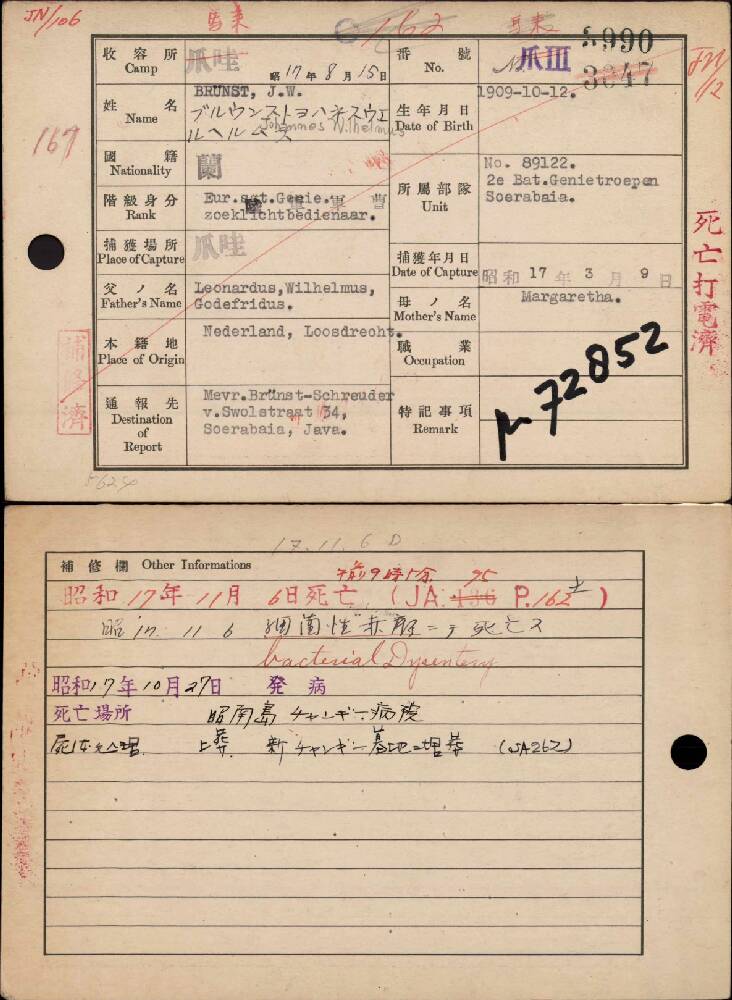 JN/106
馬来
162
馬来
5990
JN/12
收容所
Camp
爪哇
昭17年8月15日
番號
No.
爪III
3647
姓名
Name
BRÜNST, J.W.
ブルウンストヨハネスウエ
ルヘルムス
Johannes Wilhelmus
生年月日
Date of Birth
1909-10-12.
167
國籍
Nationality
蘭
所屬部隊
Unit
No. 89122.
2e Bat.Genietroepen
Soerabaia.
階級身分
Rank
Eur.sgt.Genie.
zoeklichtbedienaar.
捕獲場所
Place of Capture
爪哇
捕獲年月日
Date of Capture
昭和 17 年 3 月 9 日
父ノ名
Father's Name
Leonardus,Wilhelmus,
Godefridus.
母ノ名
Mother's Name
Margaretha.
死亡打電濟
本籍地
Place of Origin
Nederland, Loosdrecht.
職業
Occupation
通報先
Destination
of
Report
Mevr.Brünst-Schreuder
v.Swolstraat 34,
Soerabaia, Java.
特記事項
Remark
μ72852
17.11.6 D
補修欄 Other Informations
午前9時5分
昭和17年11月6日死亡 (JA. 136 95 P.162土)
昭17. 11 6 細菌性赤痢ニテ死亡ス
bacterial Dysentery
昭和17年10月27日 発病
死亡場所 昭南島チャンギー病院
死体処理 土葬 新チャンギー墓地ニ埋葬 (JA262)